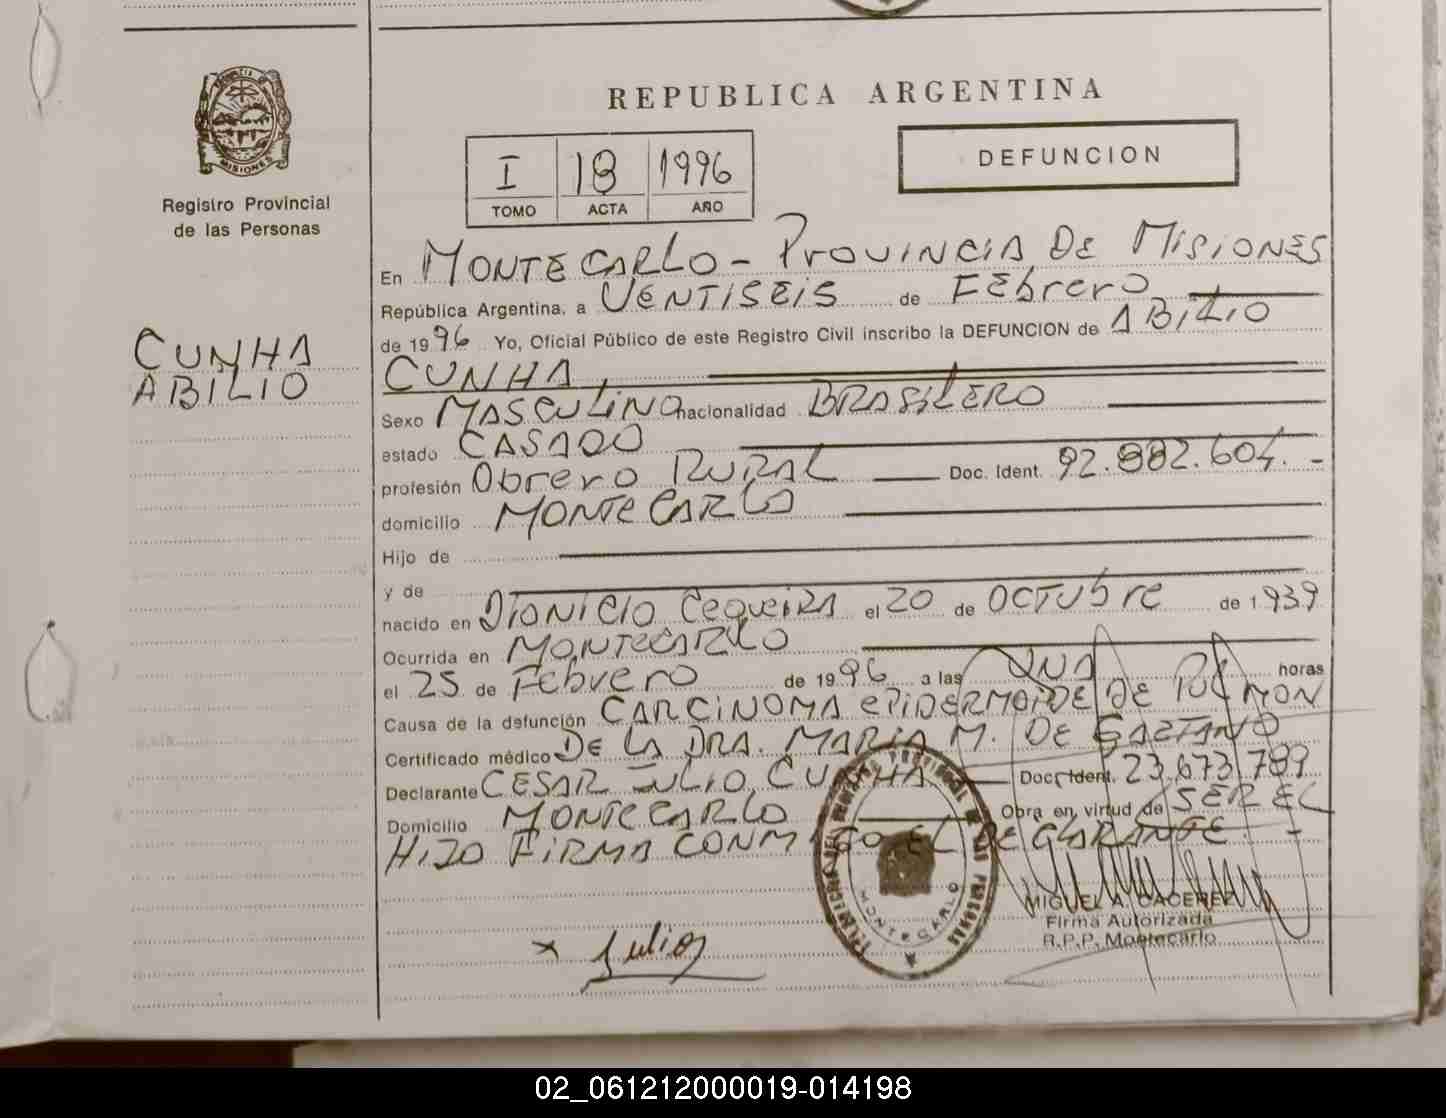 REPUBLICA ARGENTINA
DEFUNCION
I 18 1996
TOMO ACTA AÑO
MISIONES
Registro Provincial
de las Personas
CUNHA
ABILIO
En MONTECARLO - PROVINCIA DE MISIONES
República Argentina, a VENTISEIS de FEbrero
de 1996 Yo, Oficial Público de este Registro Civil inscribo la DEFUNCION de ABILIO
CUNHA
Sexo MASCULINO nacionalidad BRASILERO
estado CASADO
profesión Obrero RURAL Doc. Ident. 92.882.604.-
domicilio MONTECARLO
Hijo de
y de
nacido en DIONICIO CEQUEIRA el 20 de OCTUbre de 1.939
Ocurrida en MONTECARLO
el 25 de FEbrero de 1996 a las UNA horas
Causa de la defunción CARCINOMA EPIDERMOIDE DE PULMON
Certificado médico DE LA DRA. MARIA M. DE GAETANO
Declarante CESAR JULIO CUNHA Doc. Ident. 23.673.789
Domicilio MONTECARLO Obra en virtud de SER EL
HIJO FIRMA CONMIGO EL DECLARANTE. -
MONTECARLO
MIGUEL A. CACERES
Firma Autorizada
R.P.P. Montecarlo
x
02_061212000019-014198